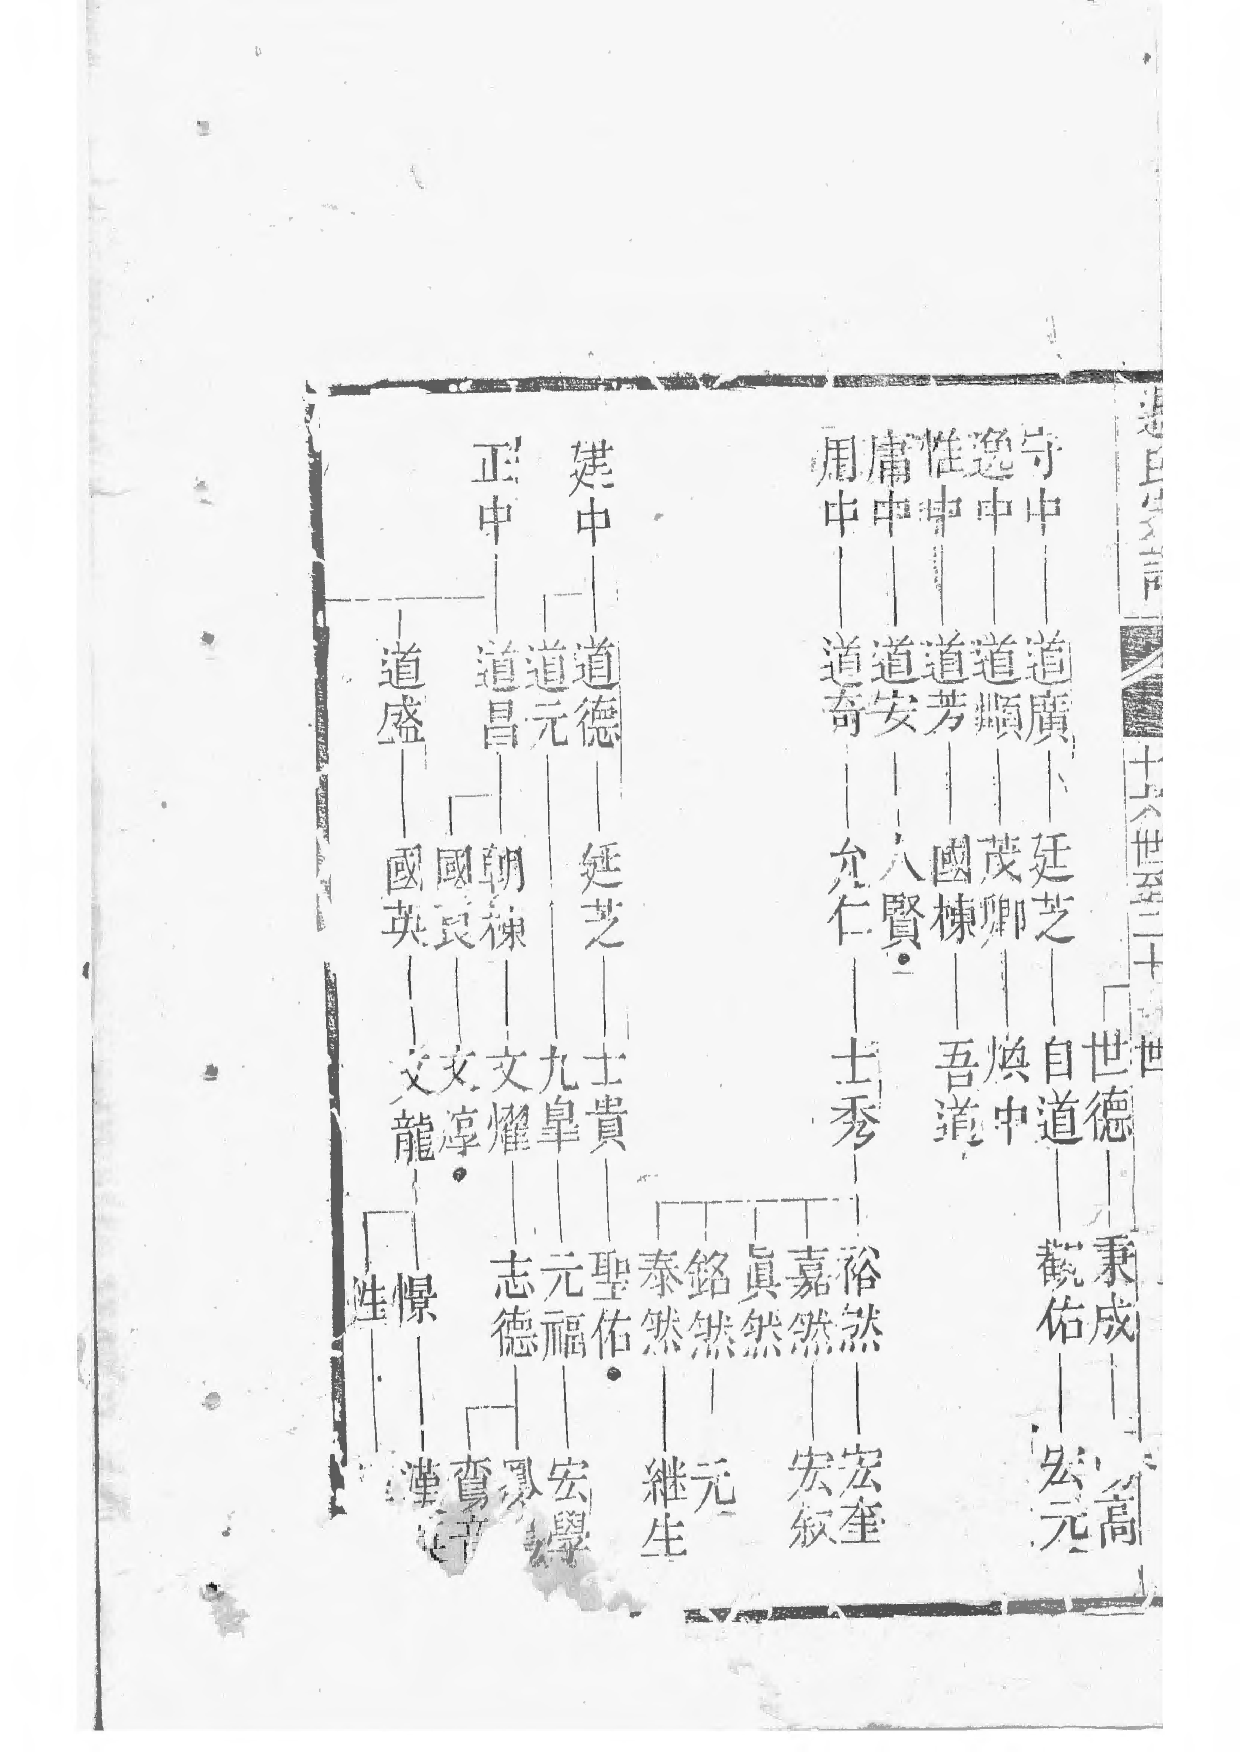 十六世至二十世
世德 秉成 高
守中 道廣 廷芝 自道 觀佑 宏元
逸中 道順 茂卿 煥中
惟中 道芳 國棟 吾道
庸中 道安 人賢
用中 道奇 允仁 士秀 裕然 宏奎
嘉然 宏叙
眞然
銘然 元
泰然 継生
建中 道德 廷芝 士貴 聖佑
道元 九皐 元福 宏學
正中 道昌 朝棟 文燿 志德
國良 文淳 鸞
道盛 國英 文龍 憬 漢
性